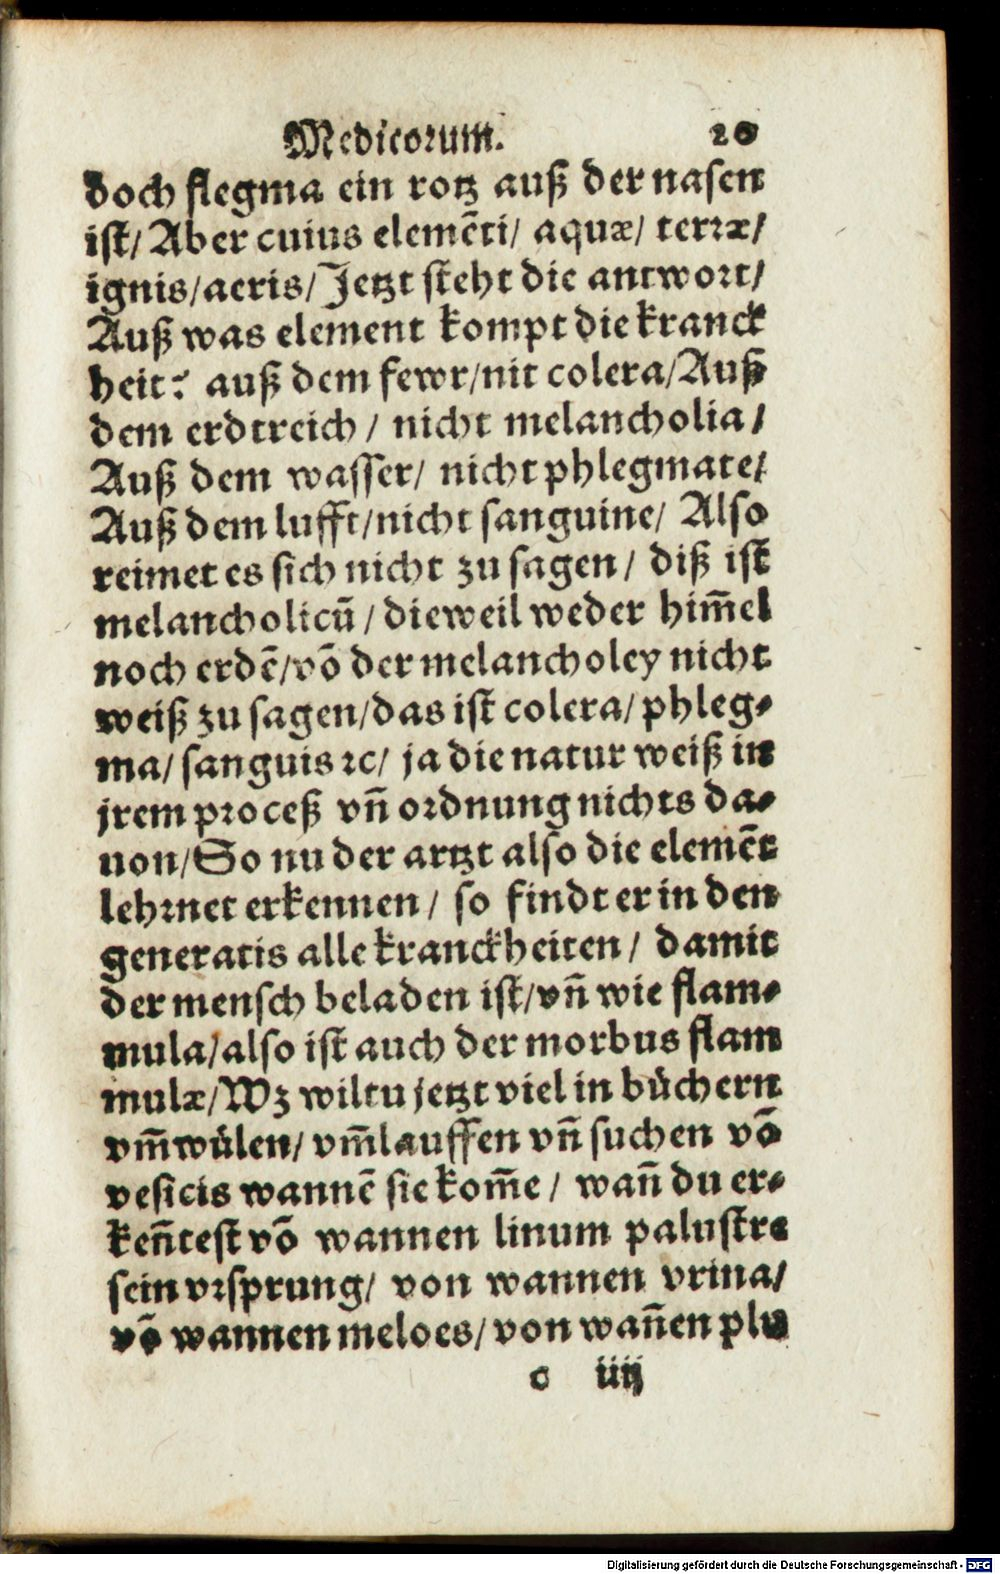 Medicorum. 20
doch flegma ein rotz auß der nasen
ist/ Aber cuius elemẽti/ aquæ/ terræ/
ignis/aeris/ Jetzt steht die antwort/
Auß was element kompt die kranck
heit? auß dem fewr/nit colera/Auß
dem erdtreich / nicht melancholia/
Auß dem wasser/ nicht phlegmate/
Auß dem lufft/nicht sanguine/ Also
reimet es sich nicht zu sagen / diß ist
melancholicũ / dieweil weder him̃el
noch erdẽ/võ der melancholey nicht
weiß zu sagen/das ist colera/ phleg-
ma/ sanguis ꝛc/ ja die natur weiß in
jrem proceß vñ ordnung nichts da-
uon/So nu der artzt also die elemẽt
lehrnet erkennen / so findt er in den
generatis alle kranckheiten / damit
der mensch beladen ist/vñ wie flam-
mula/also ist auch der morbus flam
mulæ/Wz wiltu jetzt viel in büchern
vm̃wülen/ vm̃lauffen vñ suchen võ
vesicis wannẽ sie kom̃e / wañ du er-
keñtest võ wannen linum palustre
sein vrsprung/ von wannen vrina/
võ wannen meloes/von wañen plu
c iiij
Digitalisierung gefördert durch die Deutsche Forschungsgemeinschaft - DFG